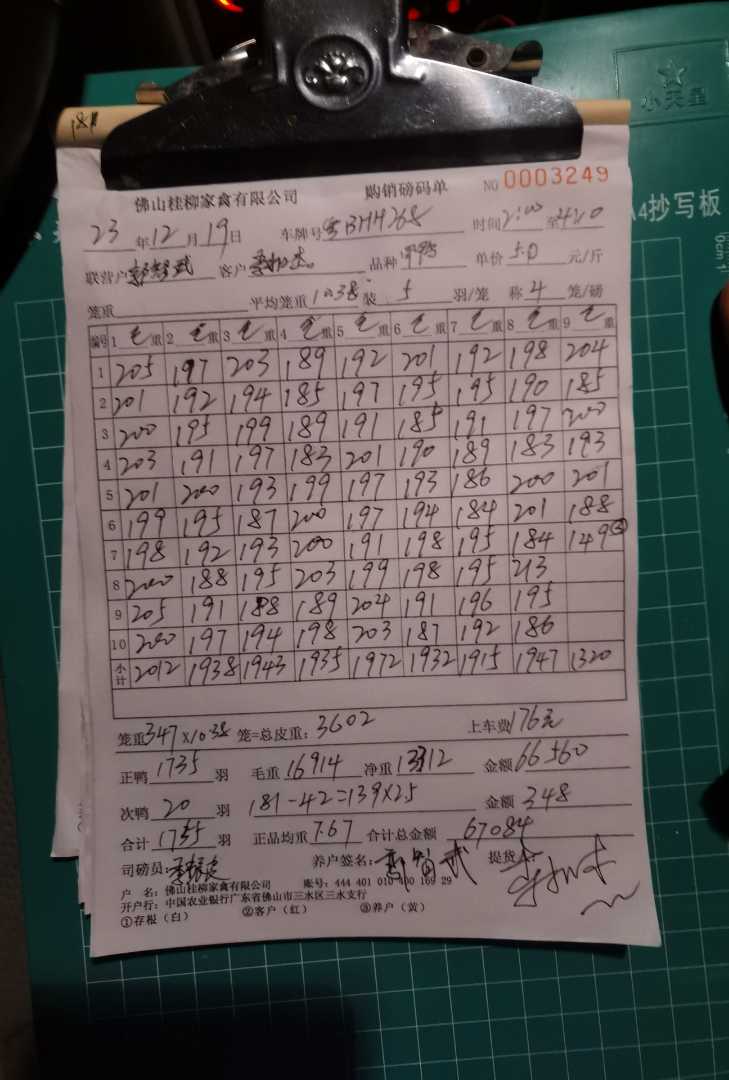 小天星
A4抄写板
181
佛山桂柳家禽有限公司 购销磅码单 NO 0003249
23年12月19日 车牌号 BHH268 时间2:00至4:20
联营户 客户 品种 单价5.0元/斤
笼重 平均笼重10.38 装5羽/笼 称4笼/磅
编号 1毛重 2毛重 3毛重 4毛重 5毛重 6毛重 7毛重 8毛重 9毛重
1 205 197 203 189 192 201 192 198 204
2 201 192 194 185 197 195 195 190 185
3 200 195 199 189 191 185 191 197 200
4 203 191 197 183 201 190 189 183 193
5 201 200 193 199 197 193 186 200 201
6 199 195 187 200 197 194 184 201 188
7 198 192 193 200 191 198 195 184 149③
8 200 188 195 203 199 198 195 213
9 205 191 188 189 204 191 196 195
10 200 197 194 198 203 187 192 186
小计 2012 1938 1943 1935 1972 1932 1915 1947 1320
笼重347×10.38笼=总皮重:3602 上车费176元
正鸭1735羽 毛重16914 净重13312 金额66560
次鸭20羽 181-42=139×25 金额348
合计1755羽 正品均重7.67 合计总金额67084
司磅员: 养户签名: 提货人:
户 名:佛山桂柳家禽有限公司 账号:444 401 010 400 169 29
开户行:中国农业银行广东省佛山市三水区三水支行
①存根(白) ②客户(红) ③养户(黄)